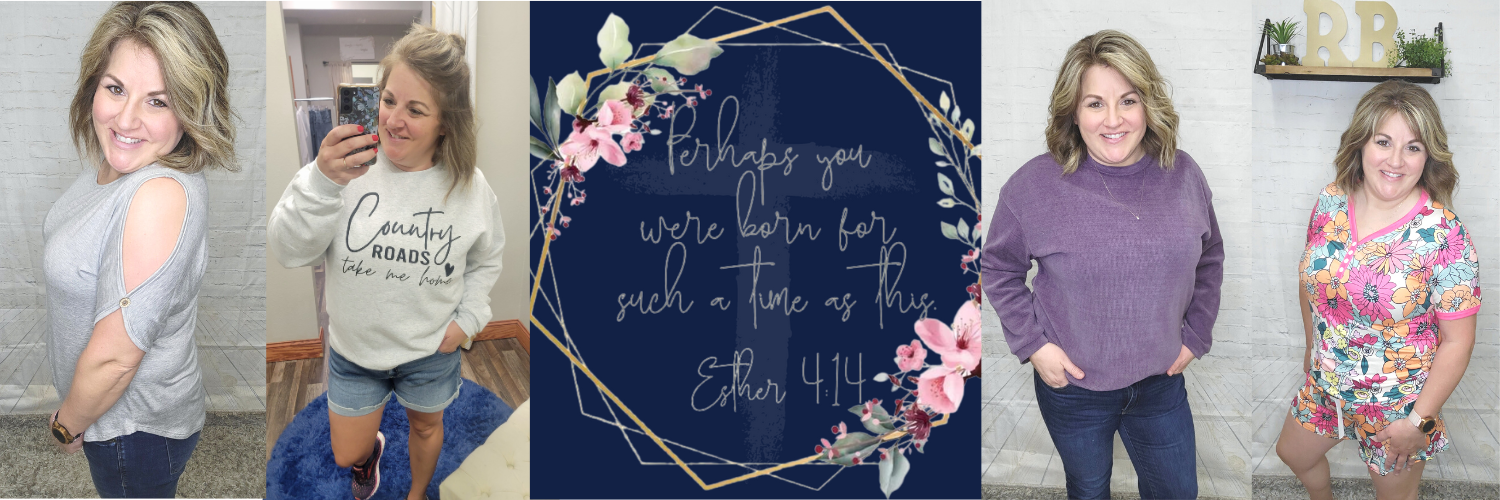 Country
ROADS
take me home
Perhaps you
were born for
such a time as this.
Esther 4:14
RB